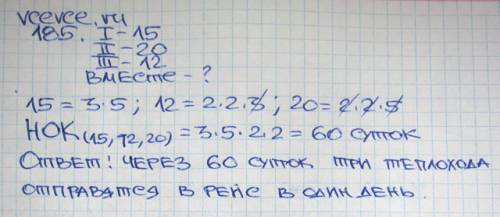 vcevce.ru
185. I-15
II-20
III-12
ВМЕСТЕ-?
15=3·5; 12=2·2·3; 20=2·2·5
НОК(15,12,20)=3·5·2·2=60 СУТОК
ОТВЕТ: ЧЕРЕЗ 60 СУТОК ТРИ ТЕПЛОХОДА
ОТПРАВЯТСЯ В РЕЙС В ОДИН ДЕНЬ.